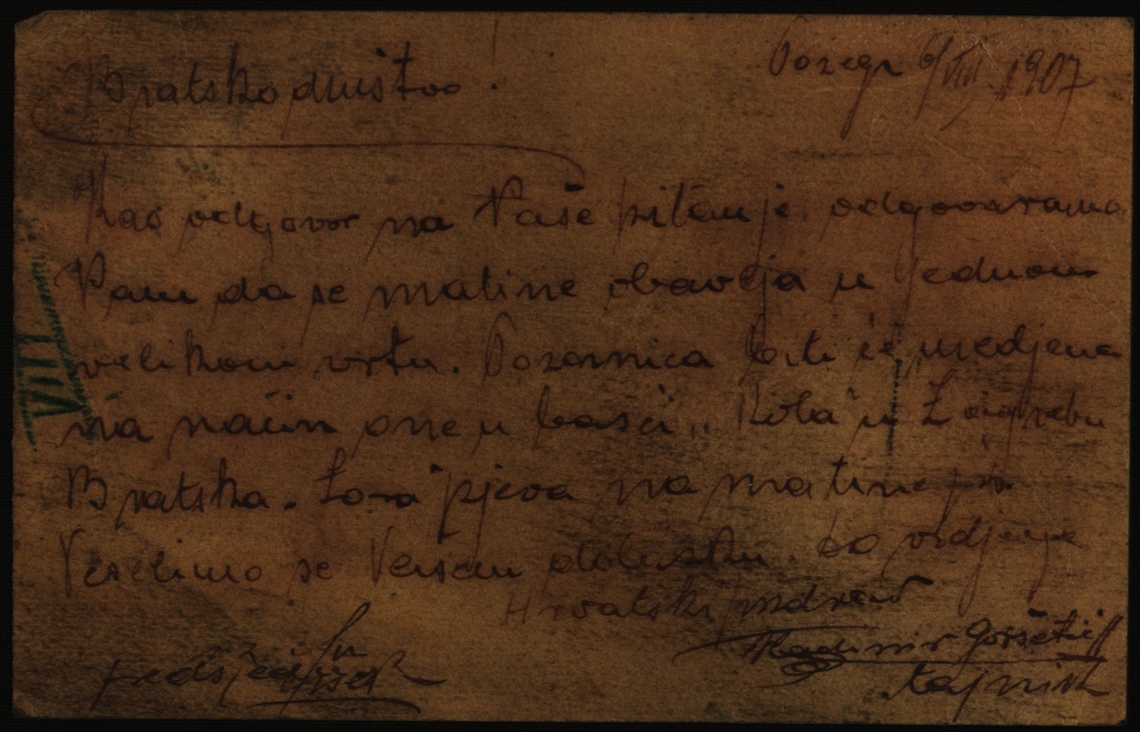 Požega 6/VIII. 1907
Bratsko društvo!
Kao odgovor na Vaše pitanje odgovaramo
Vam da se matine obavlja u jednom
velikom vrtu. Pozornica biti će uredjena
na način one u bašći „Kola" u Zagrebu
Bratska. Zora pjeva na matineji
Veselimo se Vašem dolasku. Do vidjenja
Hrvatski pozdrav
Vladimir
predsjednik
tajnik
VIII